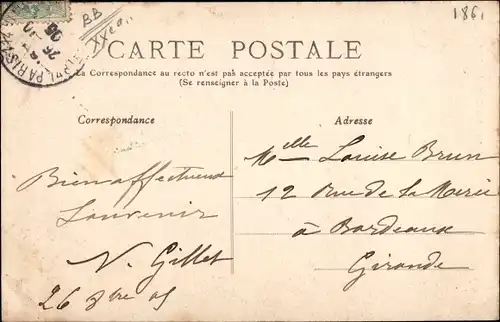 186.
BB
XXea..
PARIS
26
05
CARTE POSTALE
La Correspondance au recto n'est pas acceptée par tous les pays étrangers
(Se renseigner à la Poste)
Correspondance
Adresse
Bien affectueux
Souvenir
V. Gillet
26 8bre 05
Melle Louise Brun
12 Rue de la Merci
à Bordeaux
Gironde